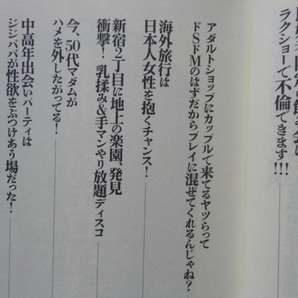 ラクショーで不倫できます!!!
アダルトショップにカップルで来てるヤツらって
ドSドMのはずだからプレイに混ぜてくれるんじゃね?
海外旅行は
日本人女性を抱くチャンス!
新宿2丁目に地上の楽園、発見
衝撃! 乳揉み&手マンやり放題ディスコ
今、50代マダムが
ハメを外したがってる!
中高年出会いパーティは
ジジババが性欲をぶつけあう場だった!